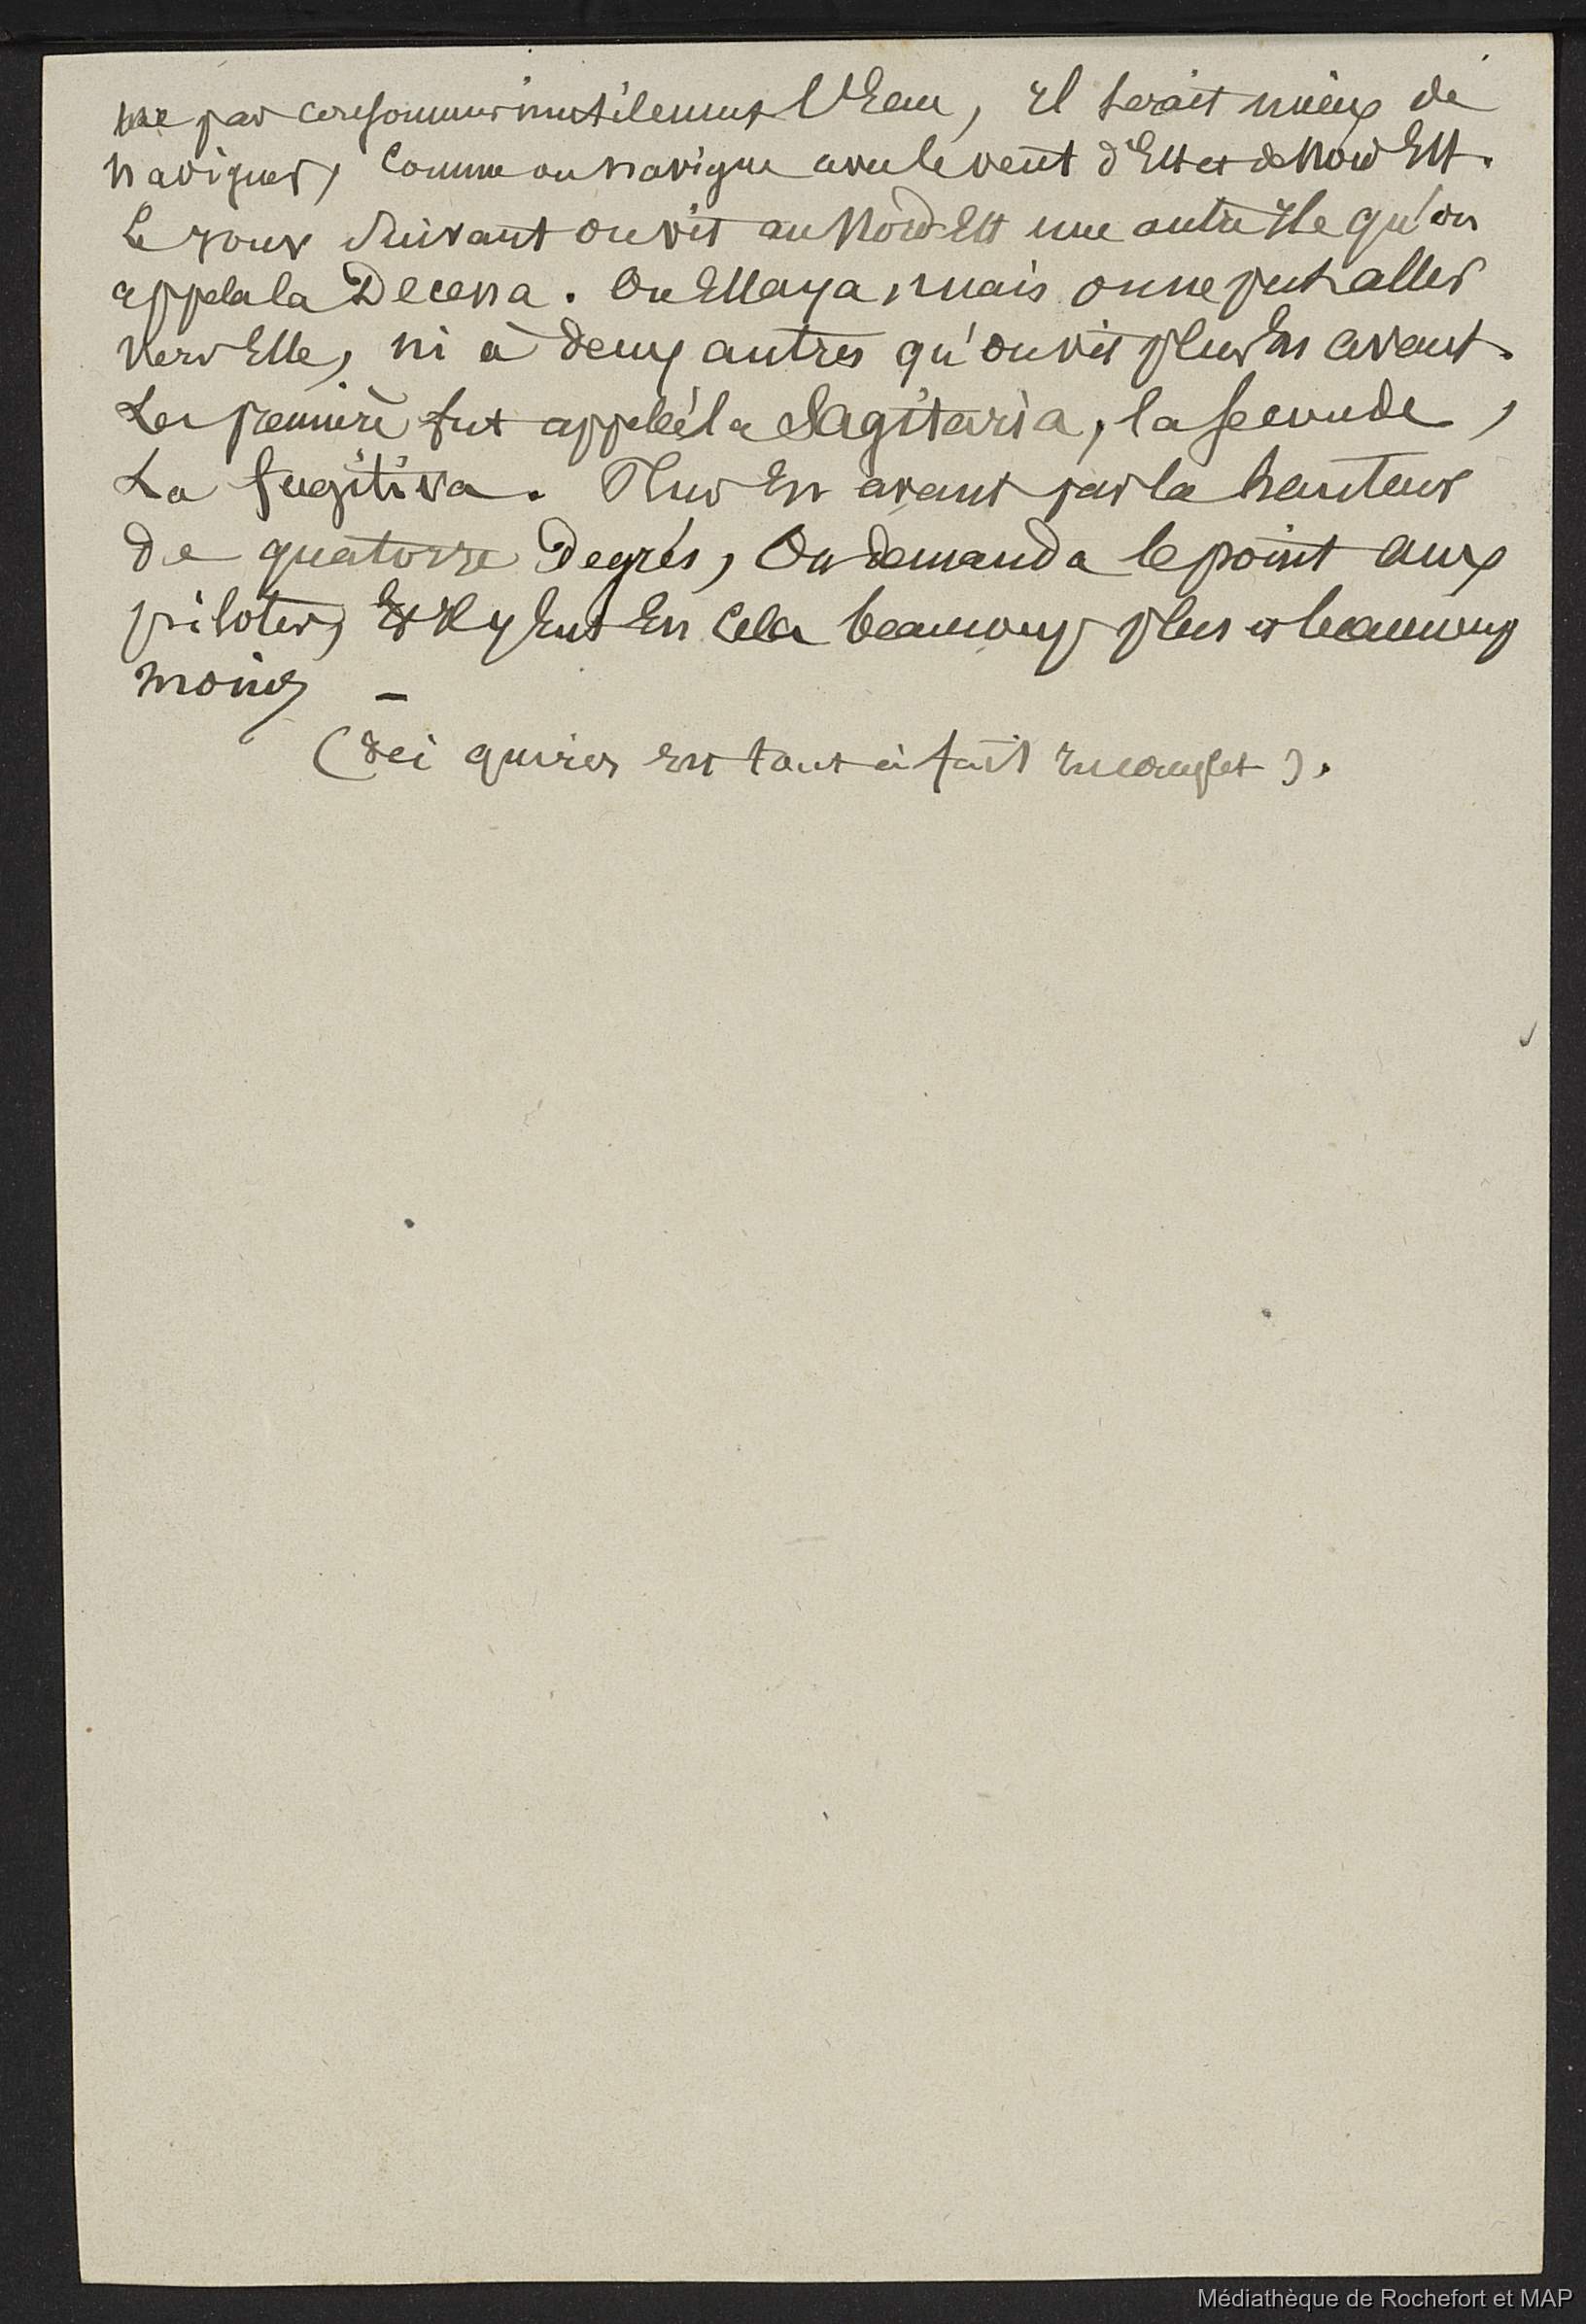 ne pas consommer inutilement l'Eau, il serait mieux de
naviguer, comme on navigue avec le vent d'Est et de Nord Est.
Le jour suivant on vit au Nord-Est une autre Ile qu'on
appela la Decena. On Essaya, mais on ne put aller
vers Elle, ni à deux autres qu'on vit plus En avant.
La première fut appelée la Sagitaria, la seconde,
La fugitiva. Plus En avant par la hauteur
de quatorze Degrés, On demanda le point aux
pilotes, Et Il y Eut En Cela beaucoup plus et beaucoup
moins —
(Ici quiros est tout à fait incomplet).
Médiathèque de Rochefort et MAP